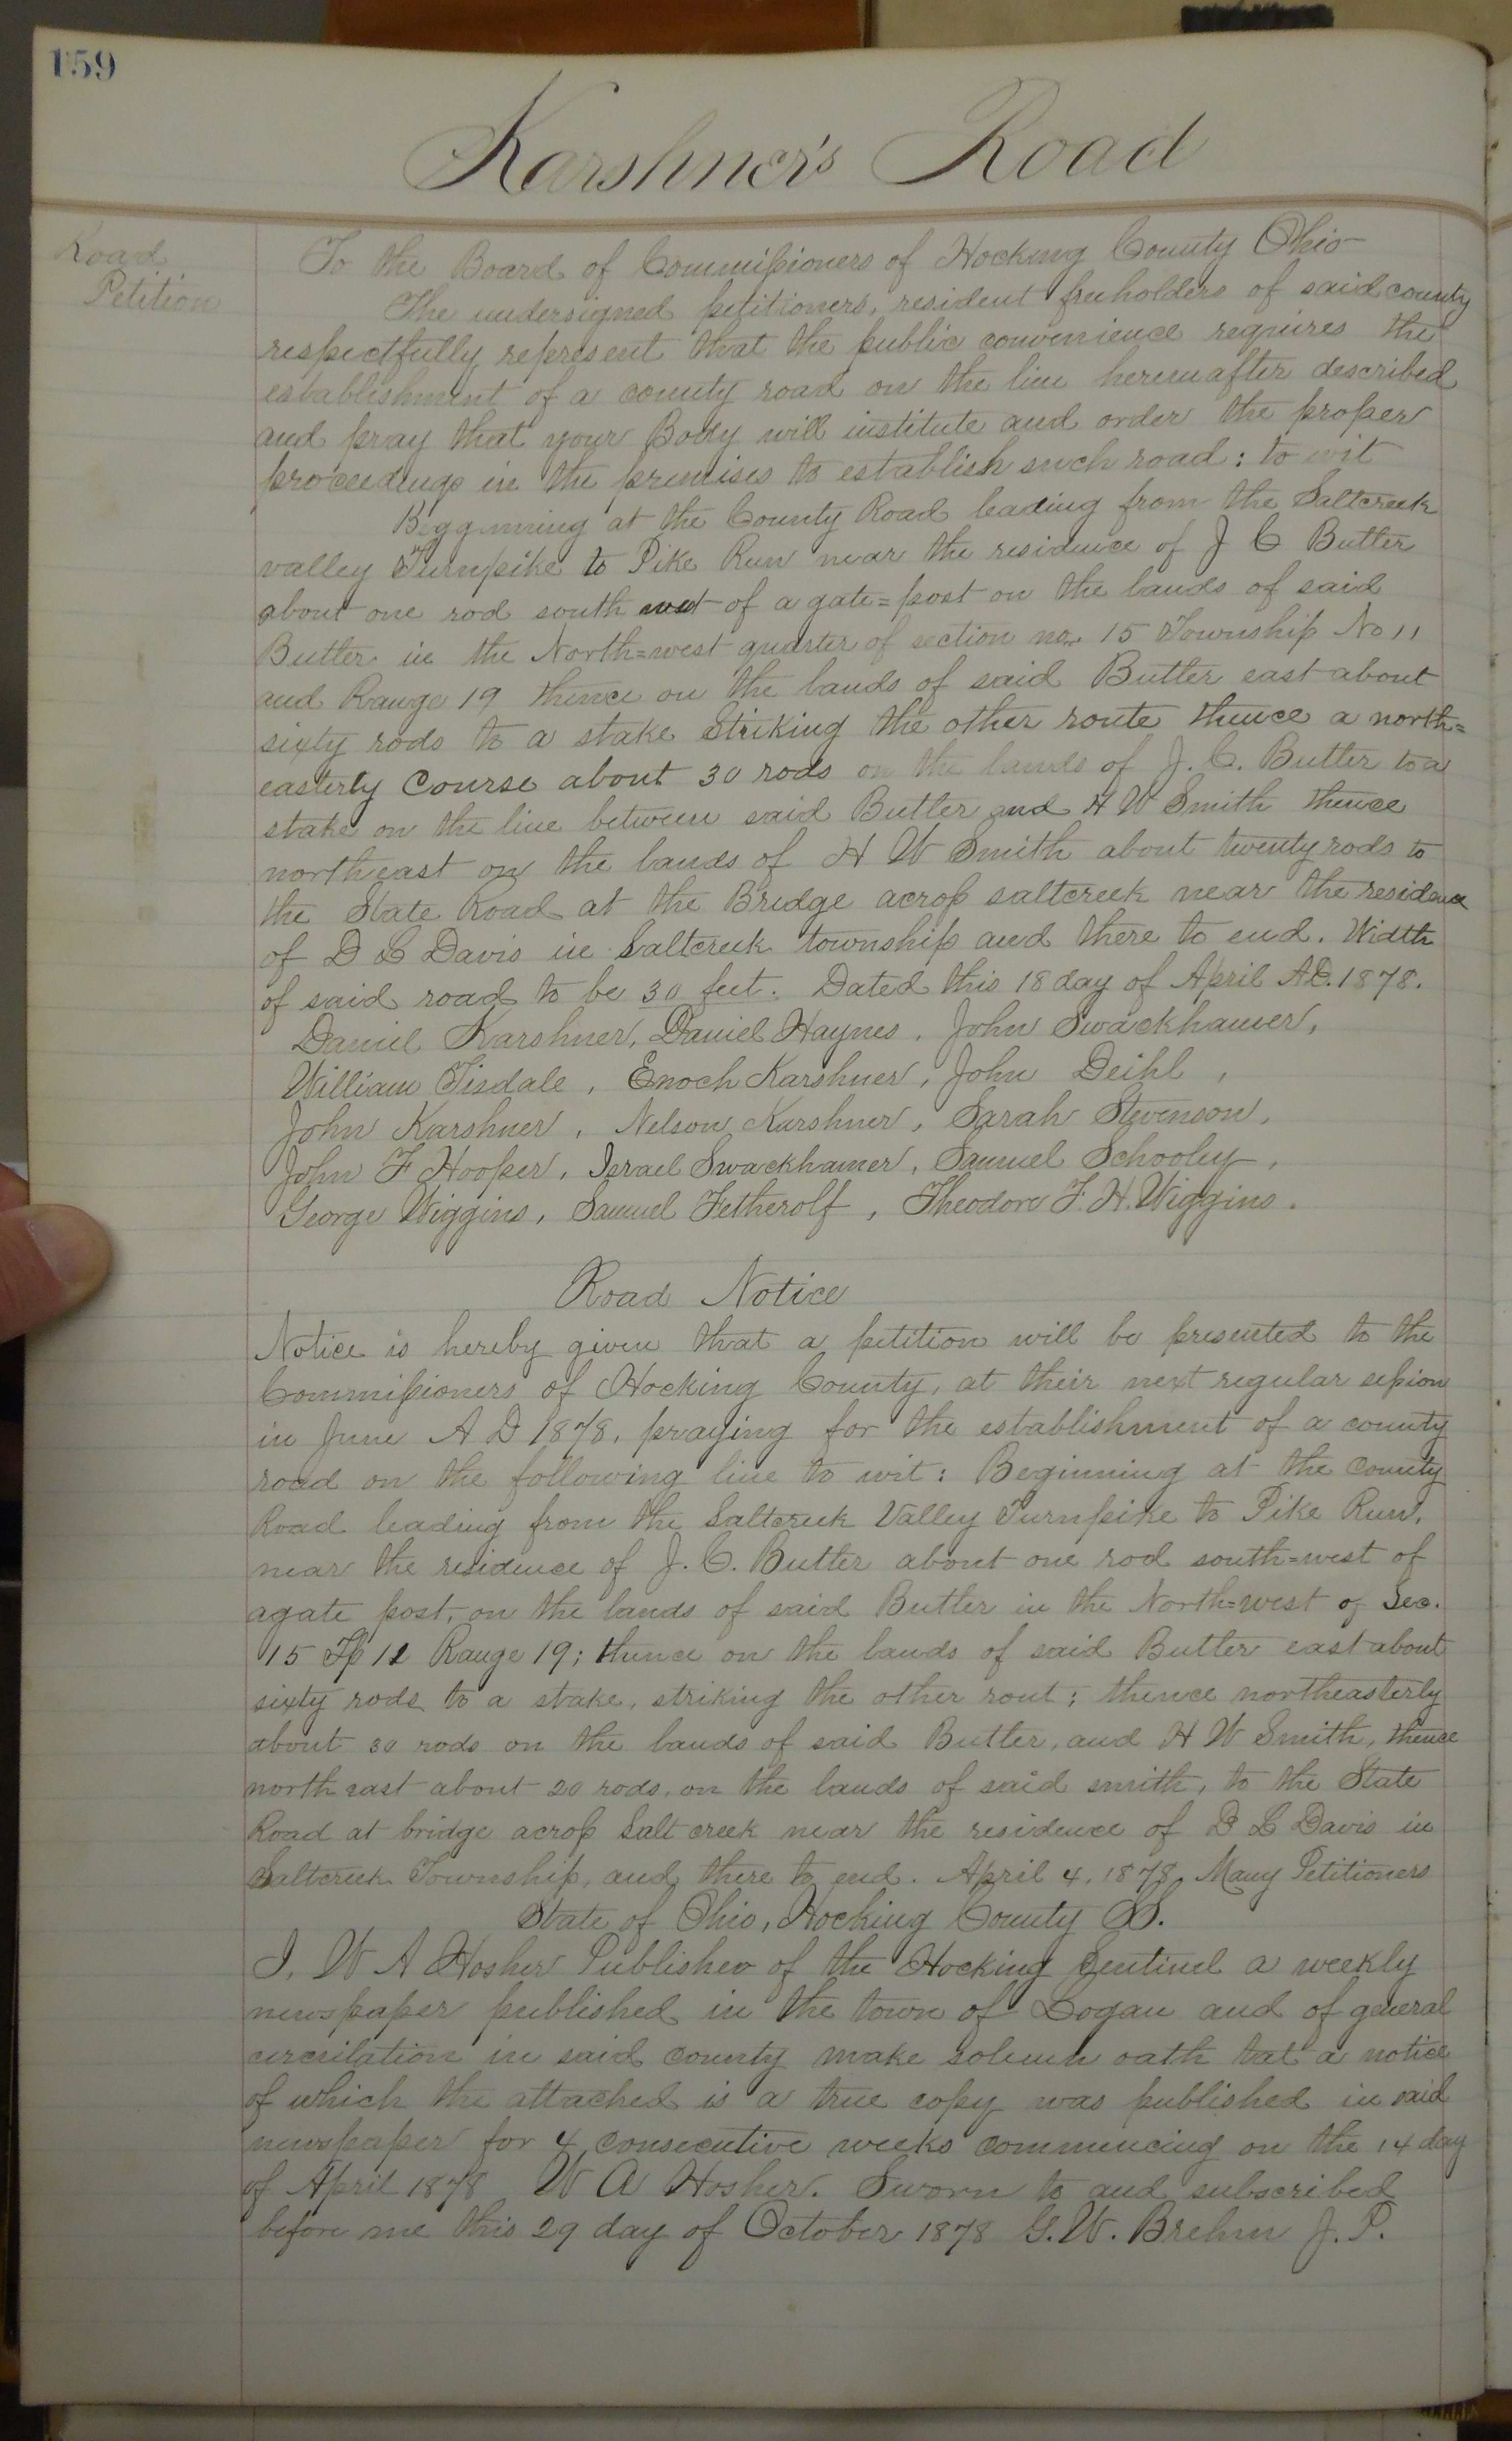 159
Karshner's Road
Road
Petition
To the Board of Commissioners of Hocking County Ohio
The undersigned petitioners, resident freeholders of said county
respectfully represent that the public convenience requires the
establishment of a county road on the line hereinafter described
and pray that your Body will institute and order the proper
proceedings in the premises to establish such road: to wit
Beggnning at the County Road leading from the Saltcreek
valley Turnpike to Pike Run near the residence of J C Butler
about one rod south west of a gate=post on the lands of said
Butler in the North=west quarter of section no. 15 Township No 11
and Range 19 thence on the lands of said Butler east about
sixty rods to a stake striking the other route thence a north=
easterly Course about 30 rods on the lands of J. C. Butler to a
stake on the line between said Butler and H W Smith thence
northeast on the lands of H W Smith about twenty rods to
the State Road at the Bridge across saltcreek near the residence
of D L Davis in Saltcreek township and there to end. Width
of said road to be 30 feet. Dated this 18 day of April A.D. 1878.
Daniel Karshner, Daniel Haynes, John Swackhamer,
William Tisdale, Enoch Karshner, John Deihl,
John Karshner, Nelson Karshner, Sarah Stevenson,
John F Hooper, Israel Swackhamer, Samuel Schooley,
George Wiggins, Samuel Fetherolf, Theodore F. H. Wiggins.
Road Notice
Notice is hereby given that a petition will be presented to the
Commissioners of Hocking County, at their next regular session
in June A D 1878, praying for the establishment of a county
road on the following line to wit: Beginning at the County
Road leading from the Saltcreek Valley Turnpike to Pike Run,
near the residence of J. C. Butler about one rod south=west of
agate post, on the lands of said Butler in the North=west of Sec.
15 Tp 11 Range 19; thence on the lands of said Butler east about
sixty rods to a stake, striking the other rout; thence northeasterly
about 30 rods on the lands of said Butler, and H W Smith, thence
north east about 20 rods, on the lands of said smith, to the State
Road at bridge across Salt creek near the residence of D L Davis in
Saltcreek Township, and there to end. April 4, 1878. Many Petitioners
State of Ohio, Hocking County SS.
I, W A Hosher Publisher of the Hocking Sentinel a weekly
newspaper published in the town of Logan and of general
circulation in said county make solemn oath tat a notice
of which the attached is a true copy was published in said
newspaper for 4 consecutive weeks commencing on the 14 day
of April 1878 W A Hosher. Sworn to and subscribed
before me this 29 day of October 1878 G. W. Brehm J. P.